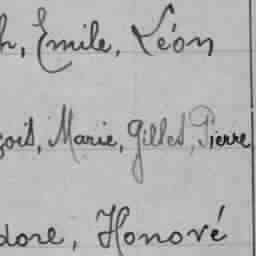 h, Emile, Léon
çois, Marie, Gilles, Pierre
dore, Honoré